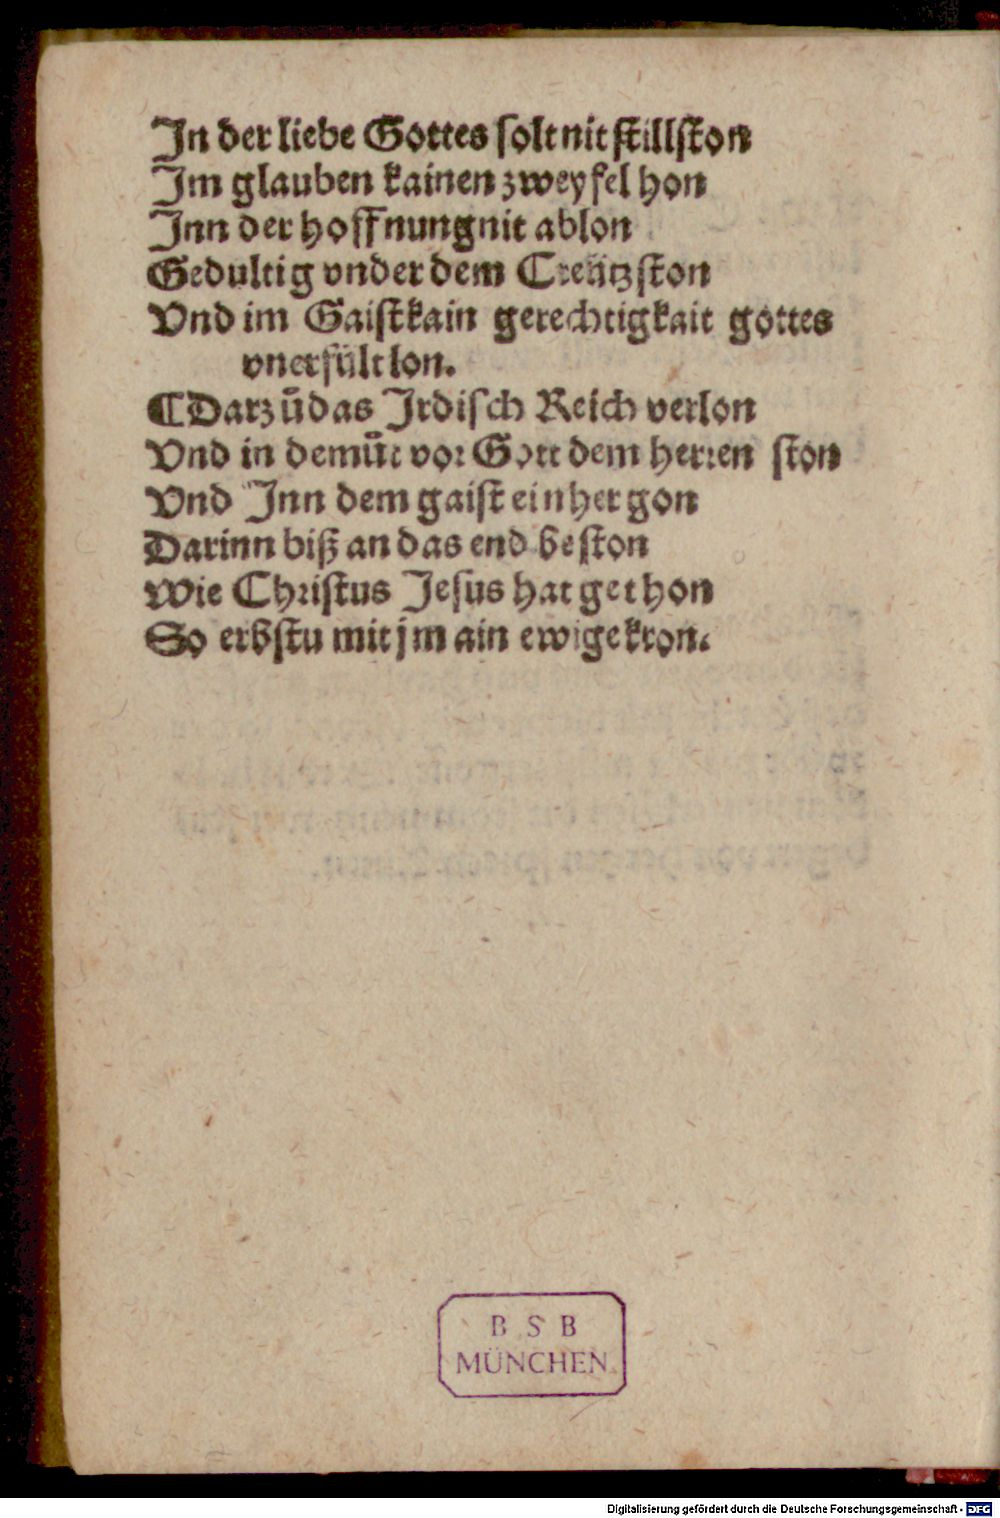 In der liebe Gottes solt nit stillston
Im glauben kainen zweyfel hon
Inn der hoffnung nit ablon
Gedultig vnder dem Creütz ston
Vnd im Gaist kain gerechtigkait gottes
vnerfült lon.
¶Darzů das Irdisch Reich verlon
Vnd in demůt vor Gott dem herren ston
Vnd Inn dem gaist einher gon
Darinn biß an das end beston
Wie Christus Jesus hat gethon
So erbstu mit jm ain ewige kron.
B S B
MÜNCHEN
Digitalisierung gefördert durch die Deutsche Forschungsgemeinschaft - DFG